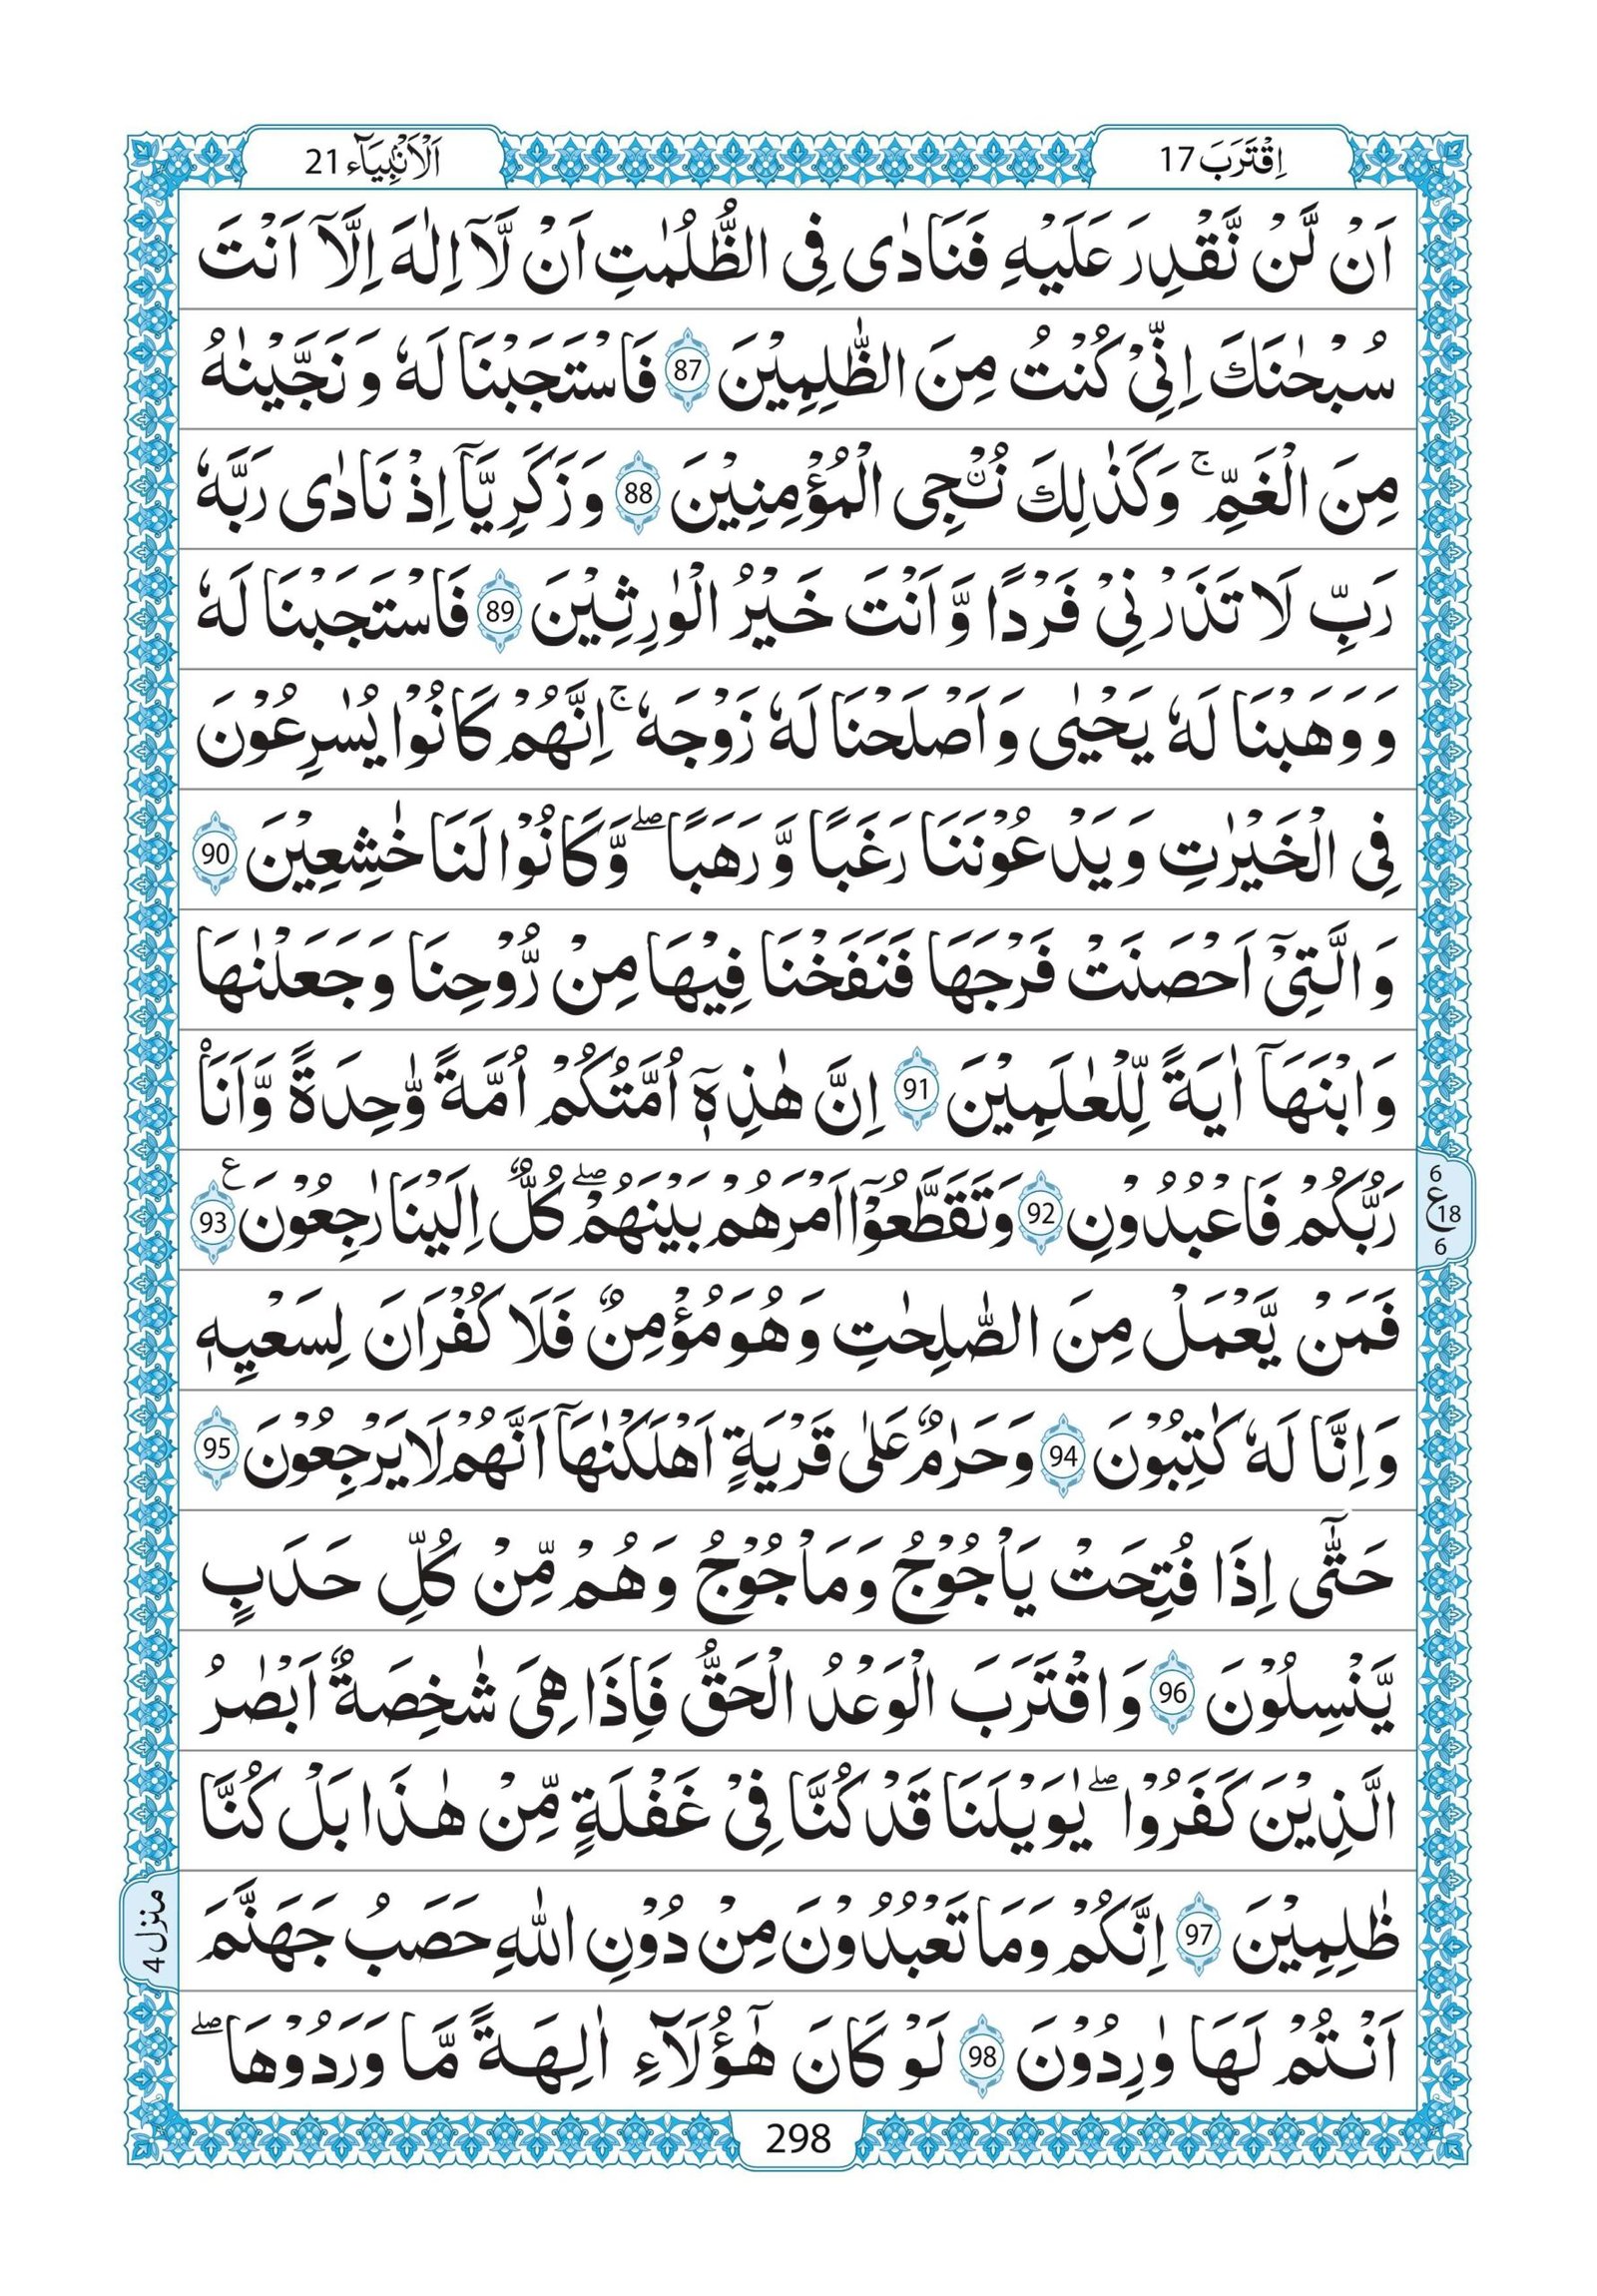 اِقْتَرَبَ 17
اَلْاَنْۢبِيَآء 21
اَنْ لَّنْ نَّقْدِرَ عَلَيْهِ فَنَادٰى فِى الظُّلُمٰتِ اَنْ لَّاۤ اِلٰهَ اِلَّاۤ اَنْتَ
سُبْحٰنَكَ اِنِّىْ كُنْتُ مِنَ الظّٰلِمِيْنَ 87 فَاسْتَجَبْنَا لَهٗ وَ نَجَّيْنٰهُ
مِنَ الْغَمِّ ۚ وَكَذٰلِكَ نُـنْجِى الْمُؤْمِنِيْنَ 88 وَ زَكَرِيَّاۤ اِذْ نَادٰى رَبَّهٗ
رَبِّ لَا تَذَرْنِىْ فَرْدًا وَّ اَنْتَ خَيْرُ الْوٰرِثِيْنَ 89 فَاسْتَجَبْنَا لَهٗ
وَ وَهَبْنَا لَهٗ يَحْيٰى وَ اَصْلَحْنَا لَهٗ زَوْجَهٗ ۚ اِنَّهُمْ كَانُوْا يُسٰرِعُوْنَ
فِى الْخَيْرٰتِ وَ يَدْعُوْنَنَا رَغَبًا وَّ رَهَبًا ۖ وَّ كَانُوْا لَنَا خٰشِعِيْنَ 90
وَ الَّتِىْۤ اَحْصَنَتْ فَرْجَهَا فَنَفَخْنَا فِيْهَا مِنْ رُّوْحِنَا وَ جَعَلْنٰهَا
وَ ابْنَهَاۤ اٰيَةً لِّلْعٰلَمِيْنَ 91 اِنَّ هٰذِهٖۤ اُمَّتُكُمْ اُمَّةً وَّاحِدَةً وَّ اَنَا۠
رَبُّكُمْ فَاعْبُدُوْنِ 92 وَ تَقَطَّعُوْۤا اَمْرَهُمْ بَيْنَهُمْ ۖ كُلٌّ اِلَيْنَا رٰجِعُوْنَ 93 ع
6
ع 18
6
فَمَنْ يَّعْمَلْ مِنَ الصّٰلِحٰتِ وَ هُوَ مُؤْمِنٌ فَلَا كُفْرَانَ لِسَعْيِهٖ
وَ اِنَّا لَهٗ كٰتِبُوْنَ 94 وَ حَرٰمٌ عَلٰى قَرْيَةٍ اَهْلَكْنٰهَاۤ اَنَّهُمْ لَا يَرْجِعُوْنَ 95
حَتّٰۤى اِذَا فُتِحَتْ يَاْجُوْجُ وَ مَاْجُوْجُ وَ هُمْ مِّنْ كُلِّ حَدَبٍ
يَّنْسِلُوْنَ 96 وَ اقْتَرَبَ الْوَعْدُ الْحَقُّ فَاِذَا هِىَ شٰخِصَةٌ اَبْصٰرُ
الَّذِيْنَ كَفَرُوْا ۖ يٰوَيْلَنَا قَدْ كُنَّا فِىْ غَفْلَةٍ مِّنْ هٰذَا بَلْ كُنَّا
ظٰلِمِيْنَ 97 اِنَّكُمْ وَ مَا تَعْبُدُوْنَ مِنْ دُوْنِ اللّٰهِ حَصَبُ جَهَنَّمَ
منزل 4
اَنْتُمْ لَهَا وٰرِدُوْنَ 98 لَوْ كَانَ هٰۤؤُلَآءِ اٰلِهَةً مَّا وَرَدُوْهَا ۖ
298